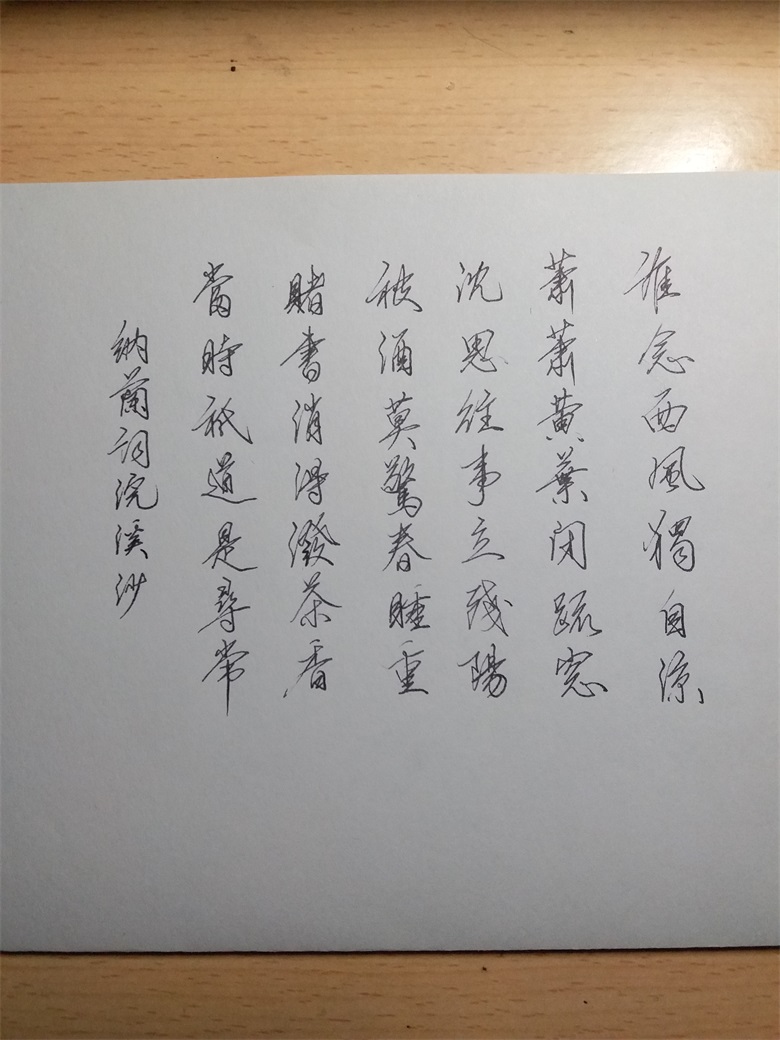 誰念西風獨自涼
蕭蕭黃葉閉疏窓
沈思往事立殘陽
被酒莫驚春睡重
賭書消得潑茶香
當時祇道是尋常
納蘭詞浣溪沙